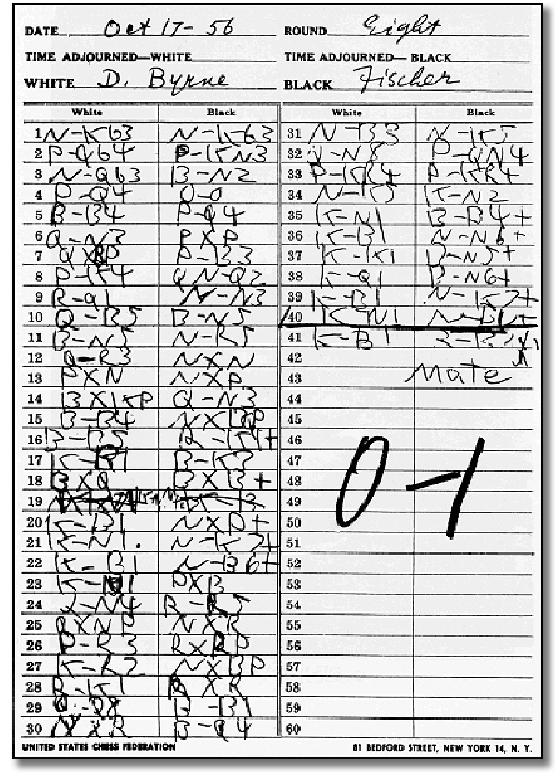 DATE Oct 17-56
ROUND Eight
TIME ADJOURNED—WHITE
TIME ADJOURNED—BLACK
WHITE D. Byrne
BLACK Fischer
White Black
1 N-KB3 N-KB3
2 P-QB4 P-KN3
3 N-QB3 B-N2
4 P-Q4 O-O
5 B-B4 P-Q4
6 Q-N3 PXP
7 QXBP P-B3
8 P-K4 QN-Q2
9 R-Q1 N-N3
10 Q-B5 B-N5
11 B-N5 N-K5
12 Q-R3 NXN
13 PXN NXP
14 BXKP Q-N3
15 B-B4 NXBP
16 B-B5 R-K1+
17 K-B1 B-K3
18 BXQ BXB+
19
20 K-B1 NXP+
21 K-N1 N-K7+
22 K-B1 N-B6+
23 K-N1 PXB
24 R-R5
25 QXNP NXR
26 P-R3 RXRP
27 K-R2 NXBP
28 R-K1 RXR
29 B-B1
30 NXR B-Q4
White Black
31 N-B3 N-K5
32 Q-N8 P-QN4
33 P-KR4 P-KR4
34 N-K5 K-N2
35 K-N1 B-B4+
36 K-B1 N-N6+
37 K-K1 B-N5+
38 K-Q1 B-N6+
39 K-B1 N-K7+
40 K-N1 N-B6+
41 K-B1 R-B7
42
43 Mate
44
45
46
47
48
49
50
51
52
53
54
55
56
57
58
59
60
0-1
UNITED STATES CHESS FEDERATION
81 BEDFORD STREET, NEW YORK 14, N. Y.